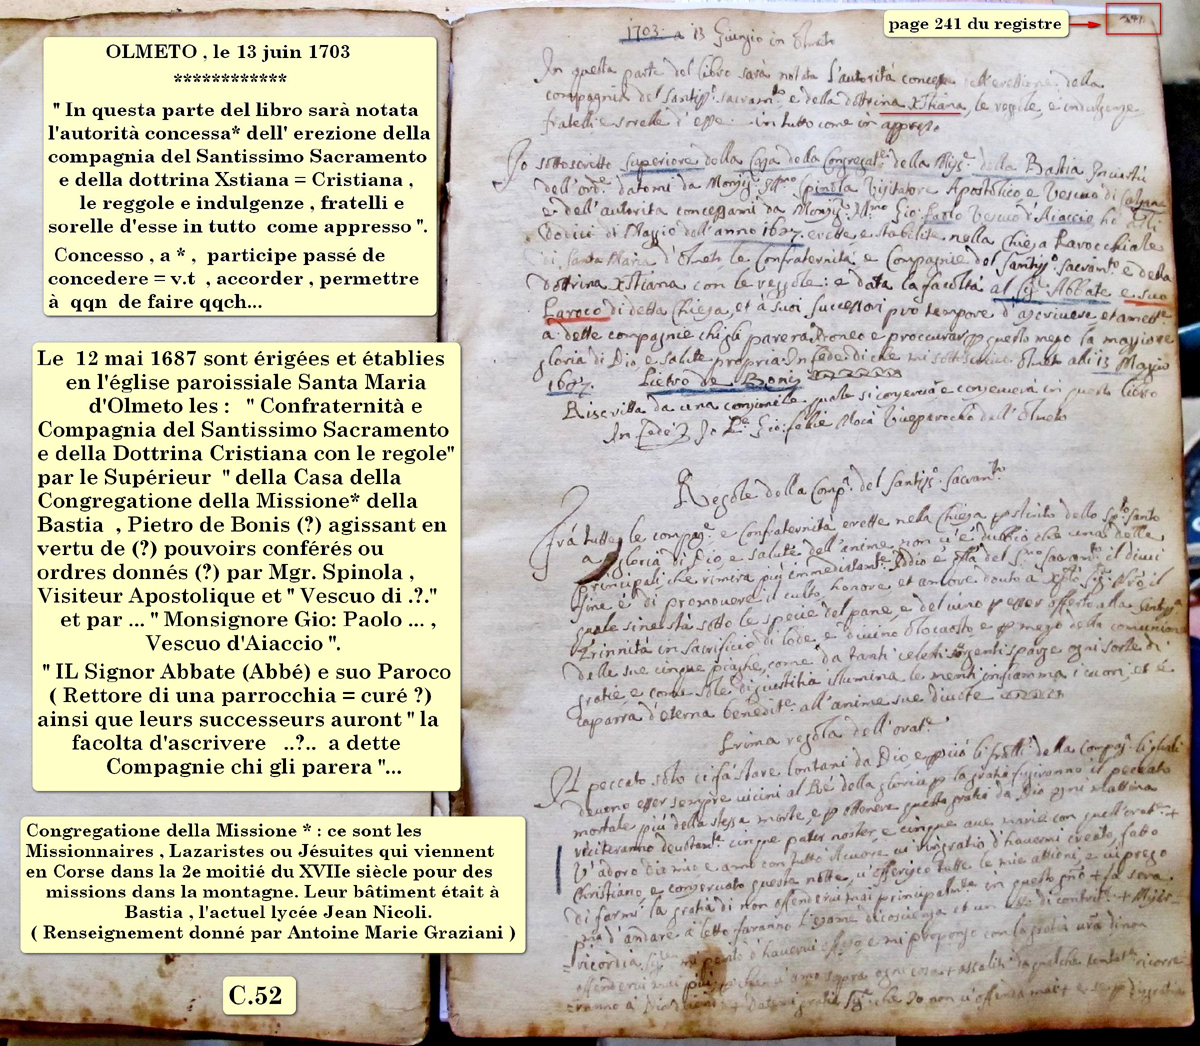 OLMETO , le 13 juin 1703
************
" In questa parte del libro sarà notata
l'autorità concessa* dell' erezione della
compagnia del Santissimo Sacramento
e della dottrina Xstiana = Cristiana ,
le reggole e indulgenze , fratelli e
sorelle d'esse in tutto come appresso ".
Concesso , a * , participe passé de
concedere = v.t , accorder , permettre
à qqn de faire qqch...
Le 12 mai 1687 sont érigées et établies
en l'église paroissiale Santa Maria
d'Olmeto les : " Confraternità e
Compagnia del Santissimo Sacramento
e della Dottrina Cristiana con le regole"
par le Supérieur " della Casa della
Congregatione della Missione* della
Bastia , Pietro de Bonis (?) agissant en
vertu de (?) pouvoirs conférés ou
ordres donnés (?) par Mgr. Spinola ,
Visiteur Apostolique et " Vescuo di .?."
et par ... " Monsignore Gio: Paolo ... ,
Vescuo d'Aiaccio ".
" IL Signor Abbate (Abbé) e suo Paroco
( Rettore di una parrocchia = curé ?)
ainsi que leurs successeurs auront " la
facolta d'ascrivere ..?.. a dette
Compagnie chi gli parera "...
Congregatione della Missione * : ce sont les
Missionnaires , Lazaristes ou Jésuites qui viennent
en Corse dans la 2e moitié du XVIIe siècle pour des
missions dans la montagne. Leur bâtiment était à
Bastia , l'actuel lycée Jean Nicoli.
( Renseignement donné par Antoine Marie Graziani )
C.52
page 241 du registre
241
1703. a 13 Giugno in Olmeto
In questa parte del libro sarà notata l'autorità concessa dell'erettione della
compagnia del Santiss.o Sacram.to e della dottrina Xstiana, le reggole e indulgenze
fratelli e sorelle d'esse in tutto come in appresso
Io sottoscritto Superiore della Casa della Congregat.e della Miss.e della Bastia In virtù
dell'ord.e datomi da Monsig.r Spinola Visitatore Apostolico e Vescuo di
e dell'autorità concessami da Monsig.r Gio: Paolo Vescuo d'Aiaccio, ho alli
dodici di Maggio dell'anno 1687 erette e stabilite nella Chiesa Parocchiale
di Santa Maria d'Olmeto le Confraternità e Compagnie del Santiss.o Sacram.to e della
dottrina Xstiana con le reggole: e data la facoltà al Sig.r Abbate e suo
Paroco di detta Chiesa, et à suoi Successori pro tempore d'ascrivere et amettere
a dette compagnie chi gli parerà idoneo e proccurar questo mezo la maggiore
gloria di Dio e salute propria. In fede di che mi Olmeto alli 13 Maggio
1687. Pietro de Bonis
Riscritta da una consimile quale si conserva e conserverà in questo libro
In fede Io P.e Gio: dell'Olmeto
Regole della Comp.a del Santiss.o Sacram.to
Frà tutte le compag.e e Confraternità erette nella Chiesa
a gloria di Dio e salute dell'anime non v'è dubbio che una delle
principali che rimira più immediatam.te Iddio è q.lla del S.mo Sacram.to il di cui
fine è di promovere il culto, honore et amore dovuto a
quale si ne stà sotto le specie del pane e del vino p esser offerto alla
Trinità in sacrificio di lode e divino Olocausto e p mezo della comunione
delle sue cinque piaghe come da tanti celesti sorgenti sparge ogni sorte di
gratie e come sole di giustitia illumina le menti, infiamma i cuori, et è
caparra d'eterna benedit.e all'anime sue divote
Prima regola dell'orat.e
Il peccato solo ci fà stare lontani da Dio e perciò li fratelli della compag.a
devono esser sempre vicini al Rè della gloria p la gratia fugiranno il peccato
mortale più della stessa morte, e p ottenere questa gratia da Dio ogni mattina
reciteranno cinque pater noster, e cinque ave marie con quest'orat.e
V'adoro dio mio e amo con tutto il cuore, vi ringratio d'havermi creato, fatto
Christiano e conservato questa notte, v'offerisco tutte le mie attioni, e vi prego
di farmi la gratia di non offendervi mai principalm.te in questo gno la sera
pria d'andare à letto faranno l'esame di coscienza et un atto di contrit.e
ricordia mi pento d'havervi offeso e mi propongo con la gratia v.ra di non
offendervi mai più